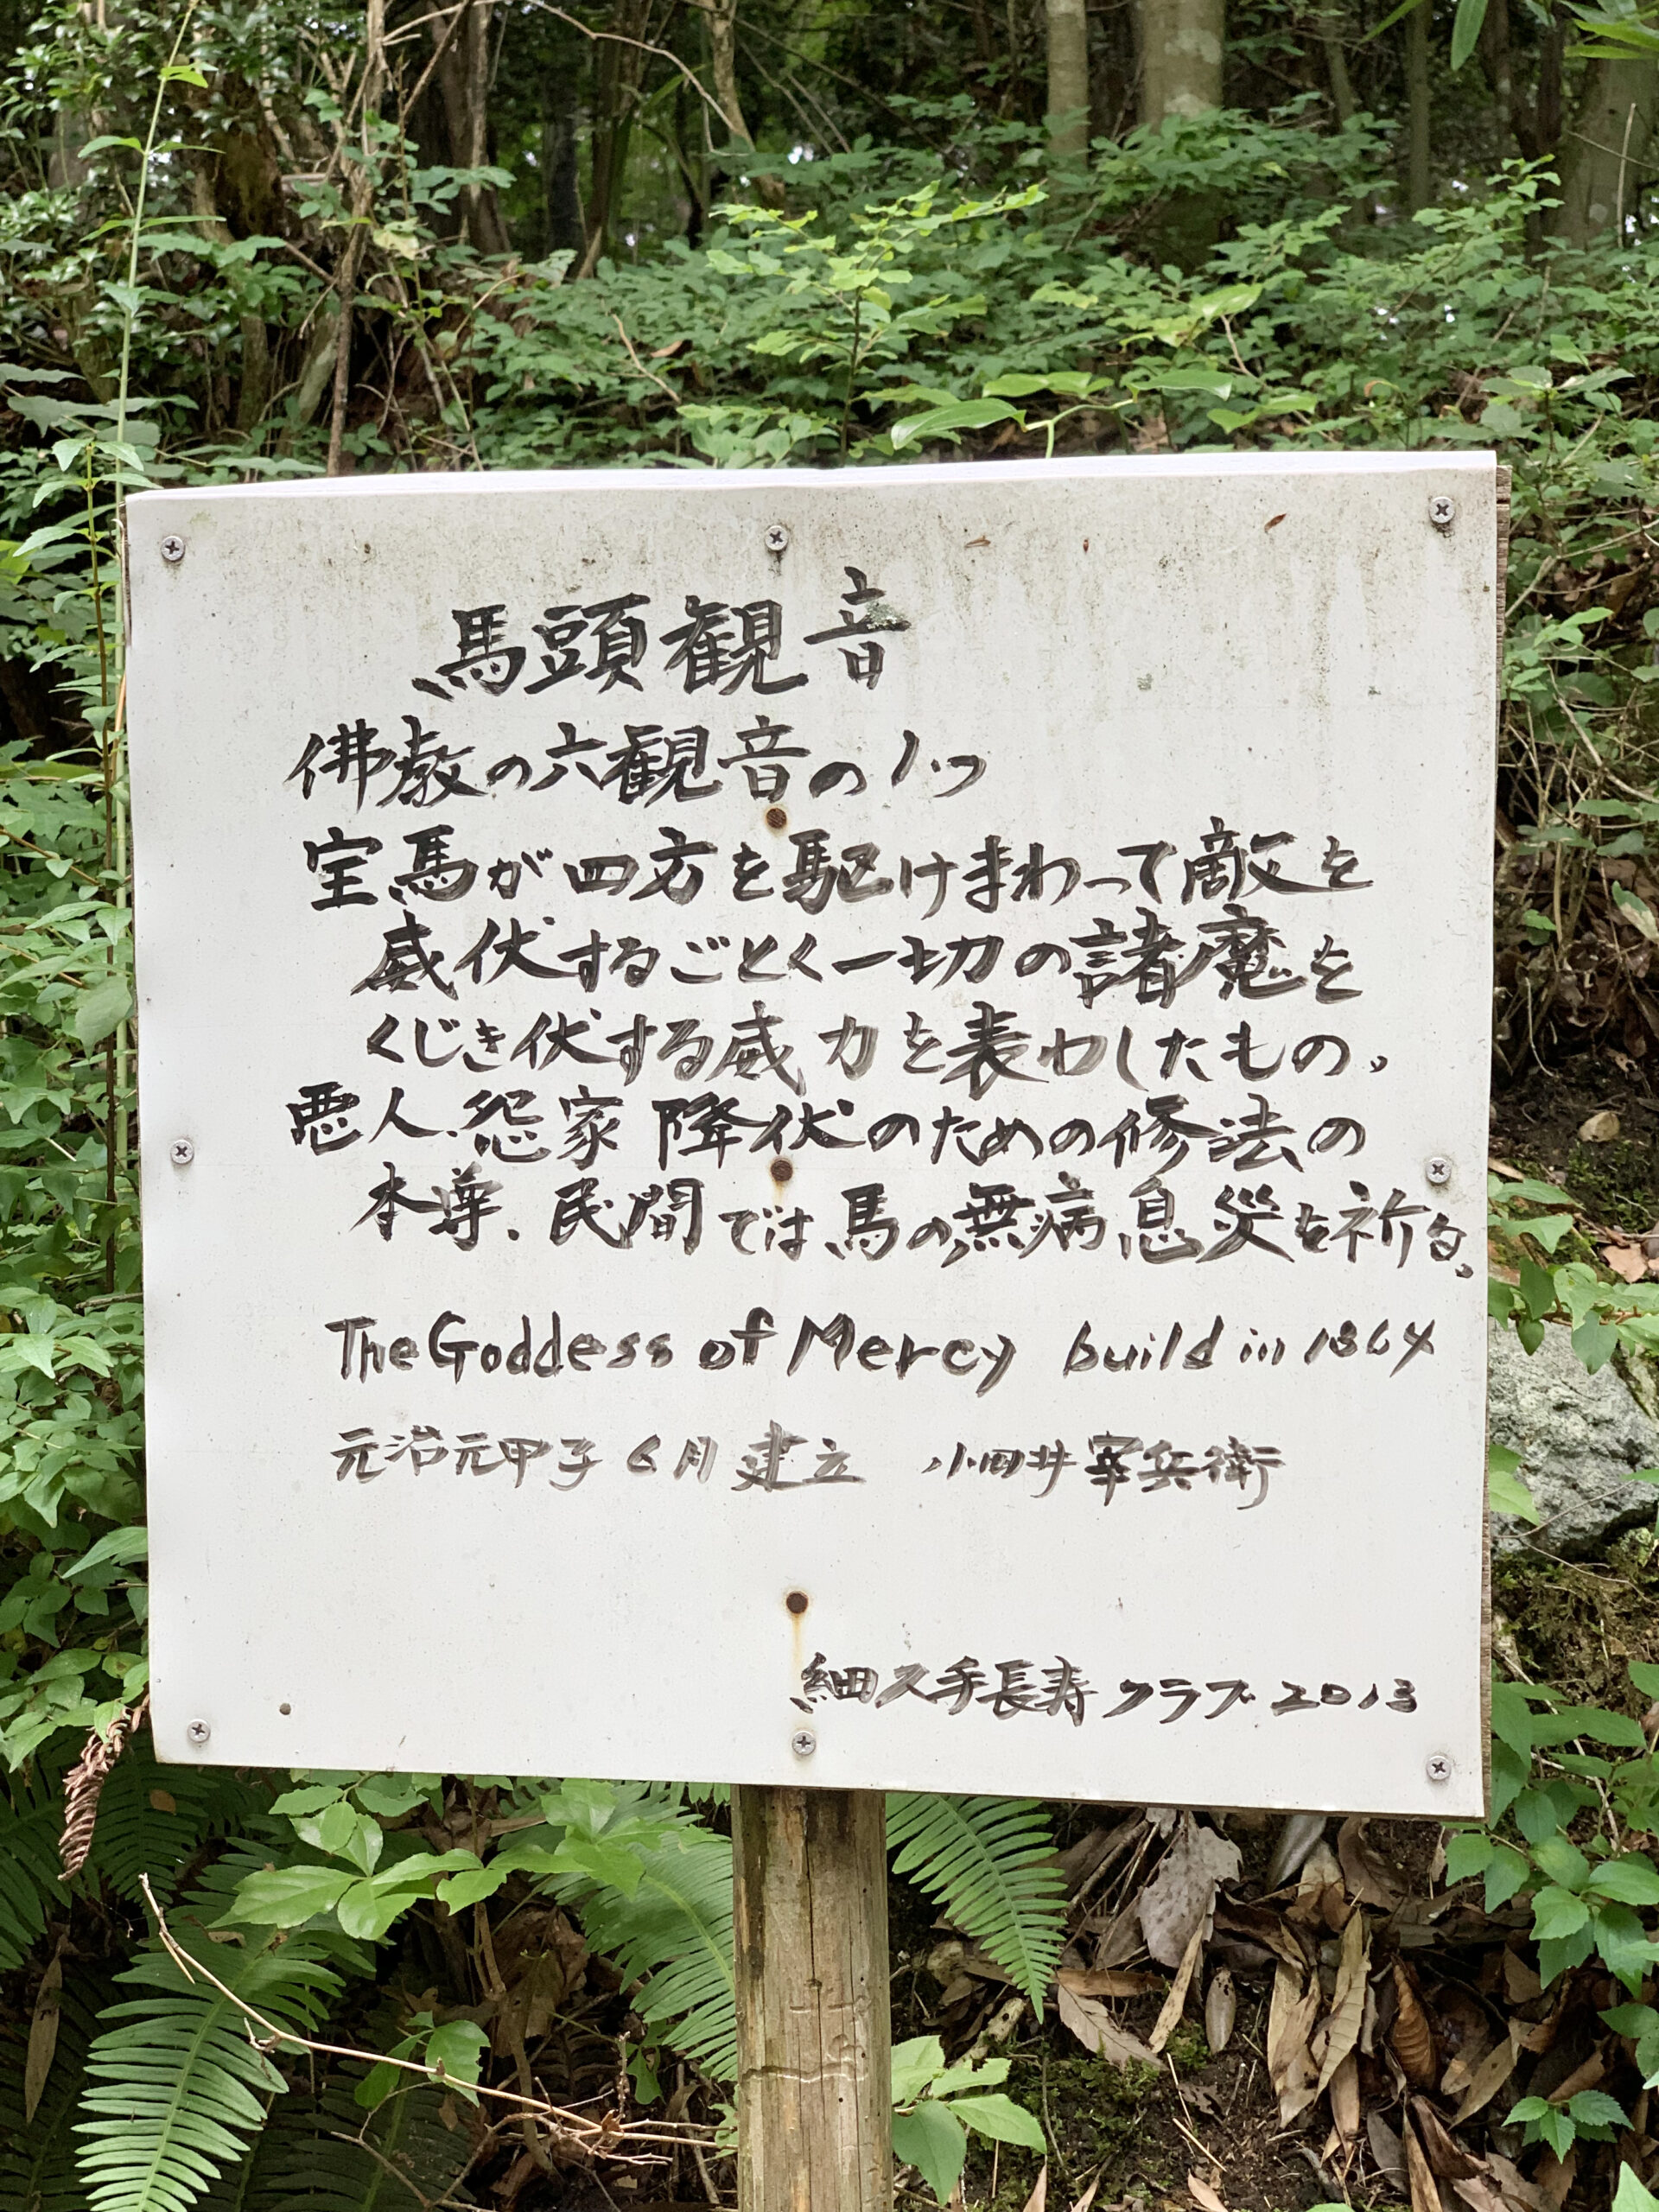 馬頭観音
佛教の六観音の1つ
宝馬が四方を駆けまわって敵を
威伏するごとく一切の諸魔を
くじき伏する威力を表わしたもの。
悪人、怨家降伏のための修法の
本尊、民間では馬の無病息災を祈る。
The Goddess of Mercy build in 1864
元治元甲子6月建立 小田井 兵衛
細久手長寿クラブ 2013